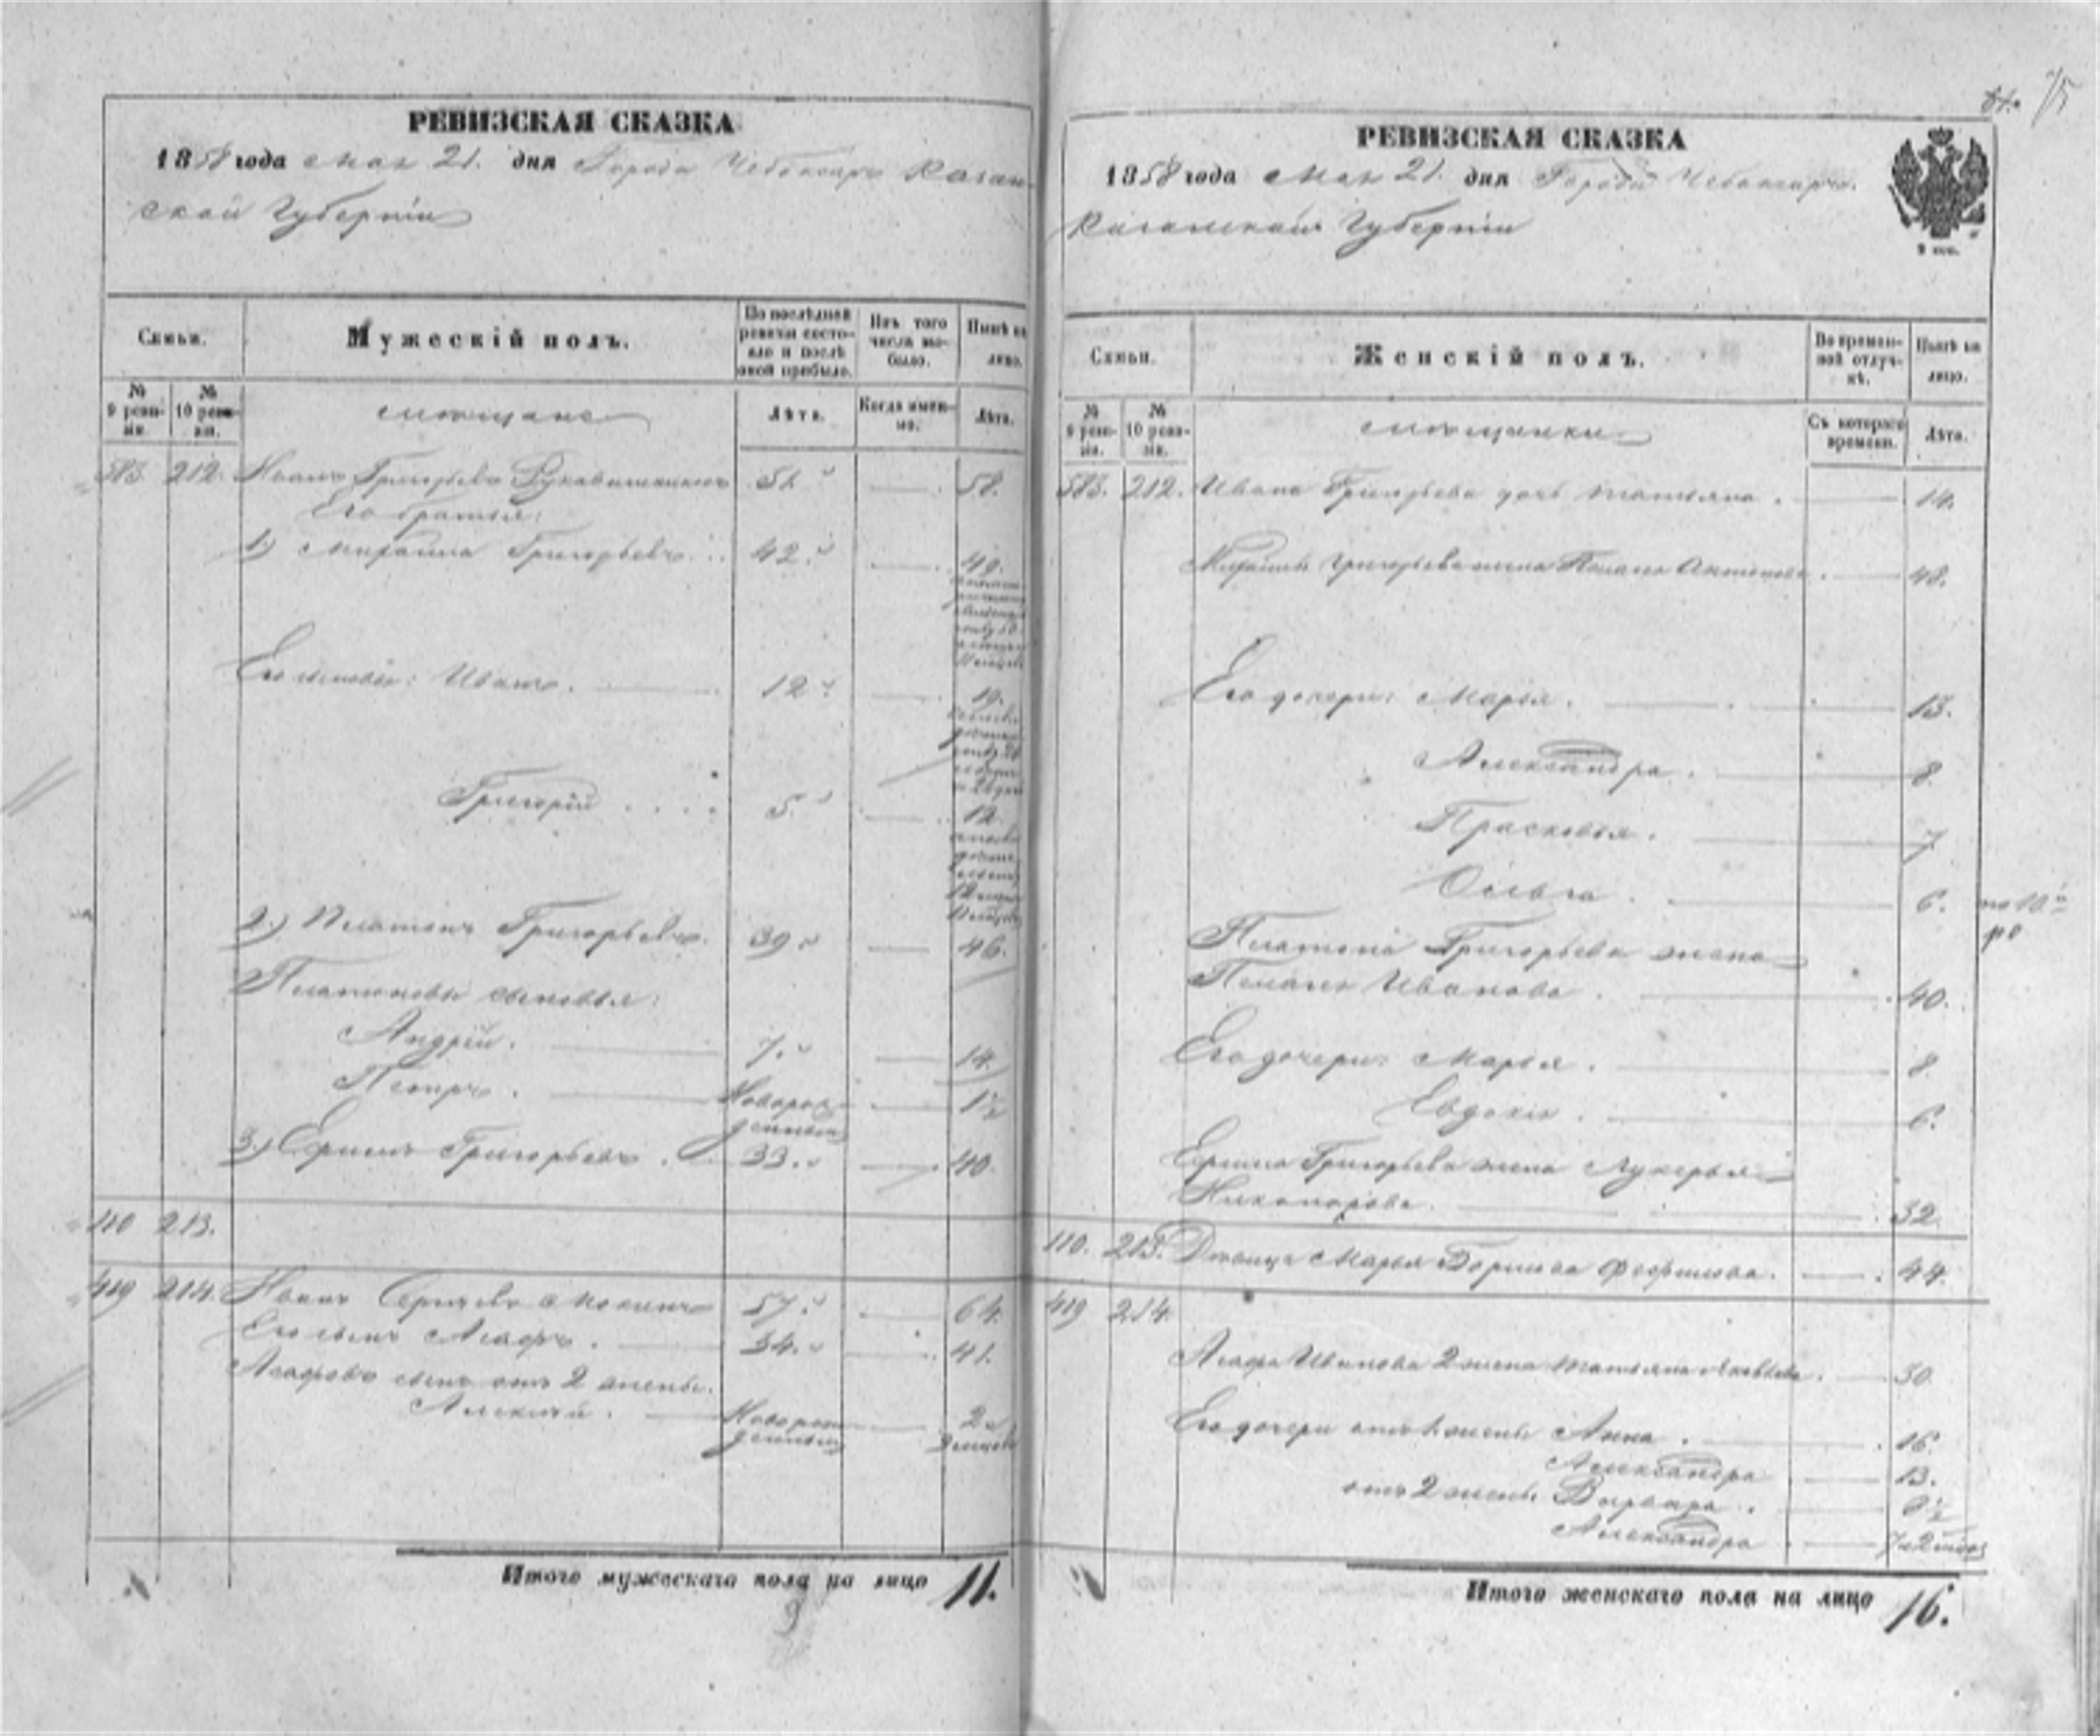 РЕВИЗСКАЯ СКАЗКА
1858 года мая 21. дня Города Чебоксаръ Казан-
ской Губерніи
Семьи.
Мужескій полъ.
По послѣдней ревизіи состо-яло и послѣ оной прибыло.
Изъ того числа вы-было.
Нынѣ на лицо.
№ 9 реви-зіи.
№ 10 реви-зіи.
мѣщане
Лѣта.
Когда имен-но.
Лѣта.
583. 212. Иванъ Григорьевъ Рукавишниковъ 51. 58.
Его братья:
1.) Михайла Григорьевъ 42. 49.
Его сыновья: Иванъ. 12. 19.
Григорій 5. 12.
2.) Платонъ Григорьевъ. 39. 46.
Платоновы сыновья:
Андрій. 7. 14.
Петръ. Новорож-денный 1½
3.) Ефимъ Григорьевъ. 33. 40.
110 213.
419 214. Иванъ Сергѣевъ 57. 64.
Его сынъ Агафъ. 34. 41.
Агафовъ сынъ отъ 2 жены.
Алексѣй. Новорож-денный 2
Итого мужескаго пола на лицо 11.
9
61. 75
РЕВИЗСКАЯ СКАЗКА
1858 года мая 21. дня Города Чебоксаръ.
Казанской Губерніи
Семьи.
Женскій полъ.
Во времен-ной отлуч-кѣ.
Нынѣ на лицо.
№ 9 реви-зіи.
№ 10 реви-зіи.
мѣщанки
Съ котораго времени.
Лѣта.
583. 212. Ивана Григорьева дочь Татьяна. 14.
Михайлы Григорьева жена Пелагея Антонова. 48.
Его дочери: Марья. 13.
Александра. 8.
Прасковья. 7
Ольга. 6. по 10й
ре
Платона Григорьева жена
Пелагея Иванова. 40.
Его дочери: Марья. 8.
Евдокія. 6.
Ефима Григорьева жена Лукерья
Никонорова. 32
110. 213. Дѣвица Марья Борисова 44.
419 214.
Агафа Иванова 2 жена Татьяна Яковлева. 30.
Его дочери отъ 1 жены Анна. 16.
Александра 13.
отъ 2 жены Варвара.
Александра
Итого женскаго пола на лицо 16.